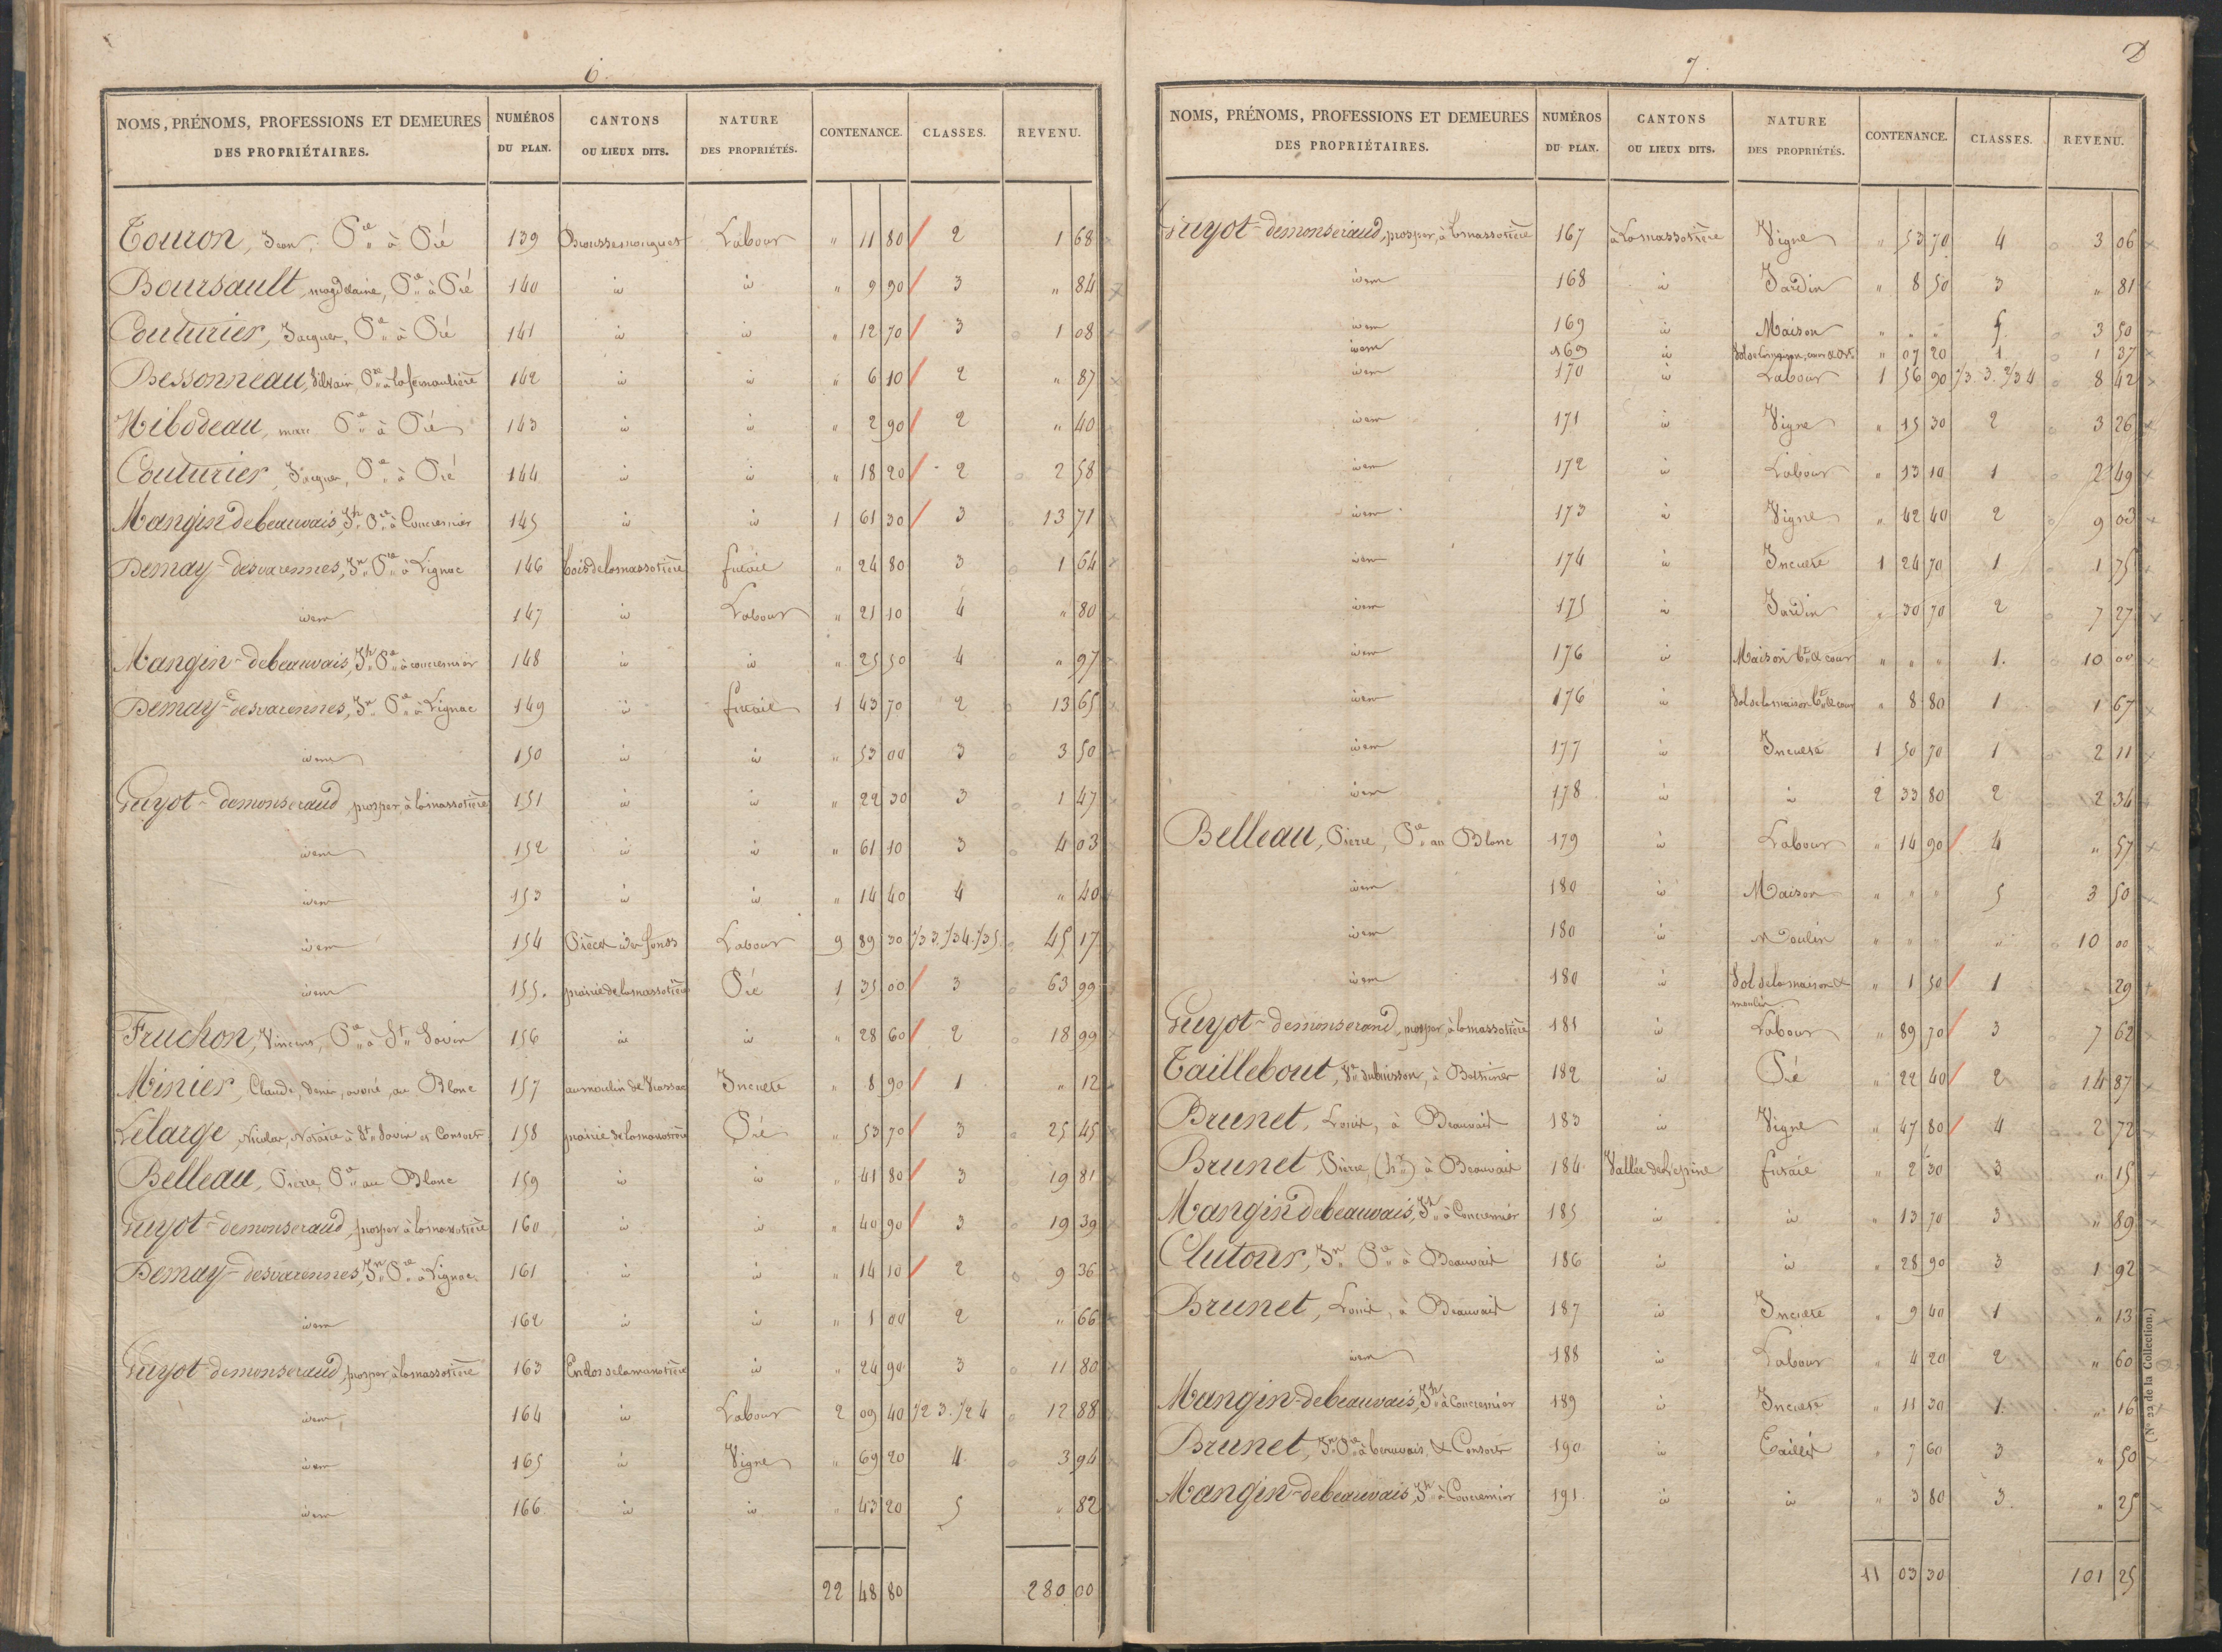 6.
NOMS, PRÉNOMS, PROFESSIONS ET DEMEURES DES PROPRIÉTAIRES. | NUMÉROS DU PLAN. | CANTONS OU LIEUX DITS. | NATURE DES PROPRIÉTÉS. | CONTENANCE. | CLASSES. | REVENU.
Touron, Jean, P.re à Pié 139 Broussemongues Labour " 11 80 2 1 68
Boursault, magdelaine, P.re à Pié 140 id id " 9 90 3 " 84
Couturier, Jacques, P.re à Pié 141 id id " 12 70 3 1 08
Bessonneau, Silvain, P.re à la 142 id id " 6 10 2 " 87
Hibodeau, marc P.re à Pié 143 id id " 2 90 2 " 40
Couturier, Jacques, P.re à Pié 144 id id " 18 20 2 2 58
Mangin debeauvais, Jh P.re à Concremier 145 id id 1 61 30 3 13 71
Demay-desvarennes, Jn P.re à Lignac 146 bois de la massotière futaie " 24 80 3 1 64
idem 147 id Labour " 21 10 4 " 80
Mangin-debeauvais, Jh P.re à concremier 148 id id " 25 50 4 " 97
Demay-desvarennes, Jn P.re à Lignac 149 id futaie 1 43 70 2 13 65
idem 150 id id " 53 00 3 3 50
Guyot-demonseraud, prosper, à lamassotière 151 id id " 22 30 3 1 47
idem 152 id id " 61 10 3 4 03
idem 153 id id " 14 40 4 " 40
idem 154 Pièces des fonds Labour 9 89 30 1/3 3. 1/3 4. 1/3 5. 45 17
idem 155. prairie de lamassotière Pré 1 35 00 3 63 99
Fruchon, Vincent, P.re à St Savin 156 id id " 28 60 2 18 99
Minier, Claude, denis, avoué, au Blanc 157 au moulin de Inculte " 8 90 1 " 12
Lelarge, Nicolas, Notaire à St Savin et Consorts 158 prairie de lamassotière Pré " 53 70 3 25 45
Belleau, Pierre, P.re au Blanc 159 id id " 41 80 3 19 81
Guyot-demonseraud, prosper à lamassotière 160 id id " 40 90 3 19 39
Demay-desvarennes, Jn P.re à Lignac. 161 id id " 14 10 2 9 36
idem 162 id id " 1 00 2 " 66
Guyot-demonseraud, prosper à lamassotière 163 Enclos de lamassotière id " 24 90 3 11 80
idem 164 id Labour 2 09 40 1/2 3. 1/2 4 12 88
idem 165 id Vigne " 69 20 4 3 94
idem 166 id id " 43 20 5 " 82
22 48 80 280 00
7.
NOMS, PRÉNOMS, PROFESSIONS ET DEMEURES DES PROPRIÉTAIRES. | NUMÉROS DU PLAN. | CANTONS OU LIEUX DITS. | NATURE DES PROPRIÉTÉS. | CONTENANCE. | CLASSES. | REVENU.
Guyot-demonseraud, prosper, à Lamassotière 167 à Lamassotière Vigne " 53 70 4 3 06
idem 168 id Jardin " 8 50 3 " 81
idem 169 id Maison " " " 5 3 50
idem 169 id Sol de la maison, cour " 07 20 1 1 37
idem 170 id Labour 1 56 90 1/3. 3. 2/3 4 8 42
idem 171 id Vigne " 15 30 2 3 26
idem 172 id Labour " 13 10 1 2 49
idem 173 id Vigne " 42 40 2 9 03
idem 174 id Inculte 1 24 70 1 1 75
idem 175 id Jardin " 30 70 2 7 27
idem 176 id Maison bt & cour " " " 1. 10 00
idem 176 id Sol de la maison bt & cour " 8 80 1 1 67
idem 177 id Inculte 1 50 70 1 2 11
idem 178 id id 2 33 80 2 2 34
Belleau, Pierre, P.re au Blanc 179 id Labour " 14 90 4 " 57
idem 180 id Maison " " " 5 3 50
idem 180 id Moulin " " " " 10 00
idem 180 id Sol de la maison & moulin " 1 50 1 " 29
Guyot-demonseraud, prosper, à lamassotière 181 id Labour " 89 70 3 7 62
Taillebout, dubuisson, à 182 id Pré " 22 40 2 14 87
Brunet, Louis, à Beauvais 183 id Vigne " 47 80 4 2 72
Brunet, Pierre, à Beauvais 184 Vallée de Lepine futaie " 2 30 3 " 15
Mangin debeauvais, Jh à Concremier 185 id id " 13 70 3 " 89
Clutour, Jn P.re à Beauvais 186 id id " 28 90 3 1 92
Brunet, Louis, à Beauvais 187 id Inculte " 9 40 1 " 13
idem 188 id Labour " 4 20 2 " 60
Mangin-debeauvais, Jh à Concremier 189 id Inculte " 11 30 1. " 16
Brunet, Jn P.re à beauvais, & Consorts 190 id Taillis " 7 60 3 " 50
Mangin-debeauvais, Jh à Concremier 191 id id " 3 80 3. " 25
11 03 30 101 25
(N° 22 de la Collection.)